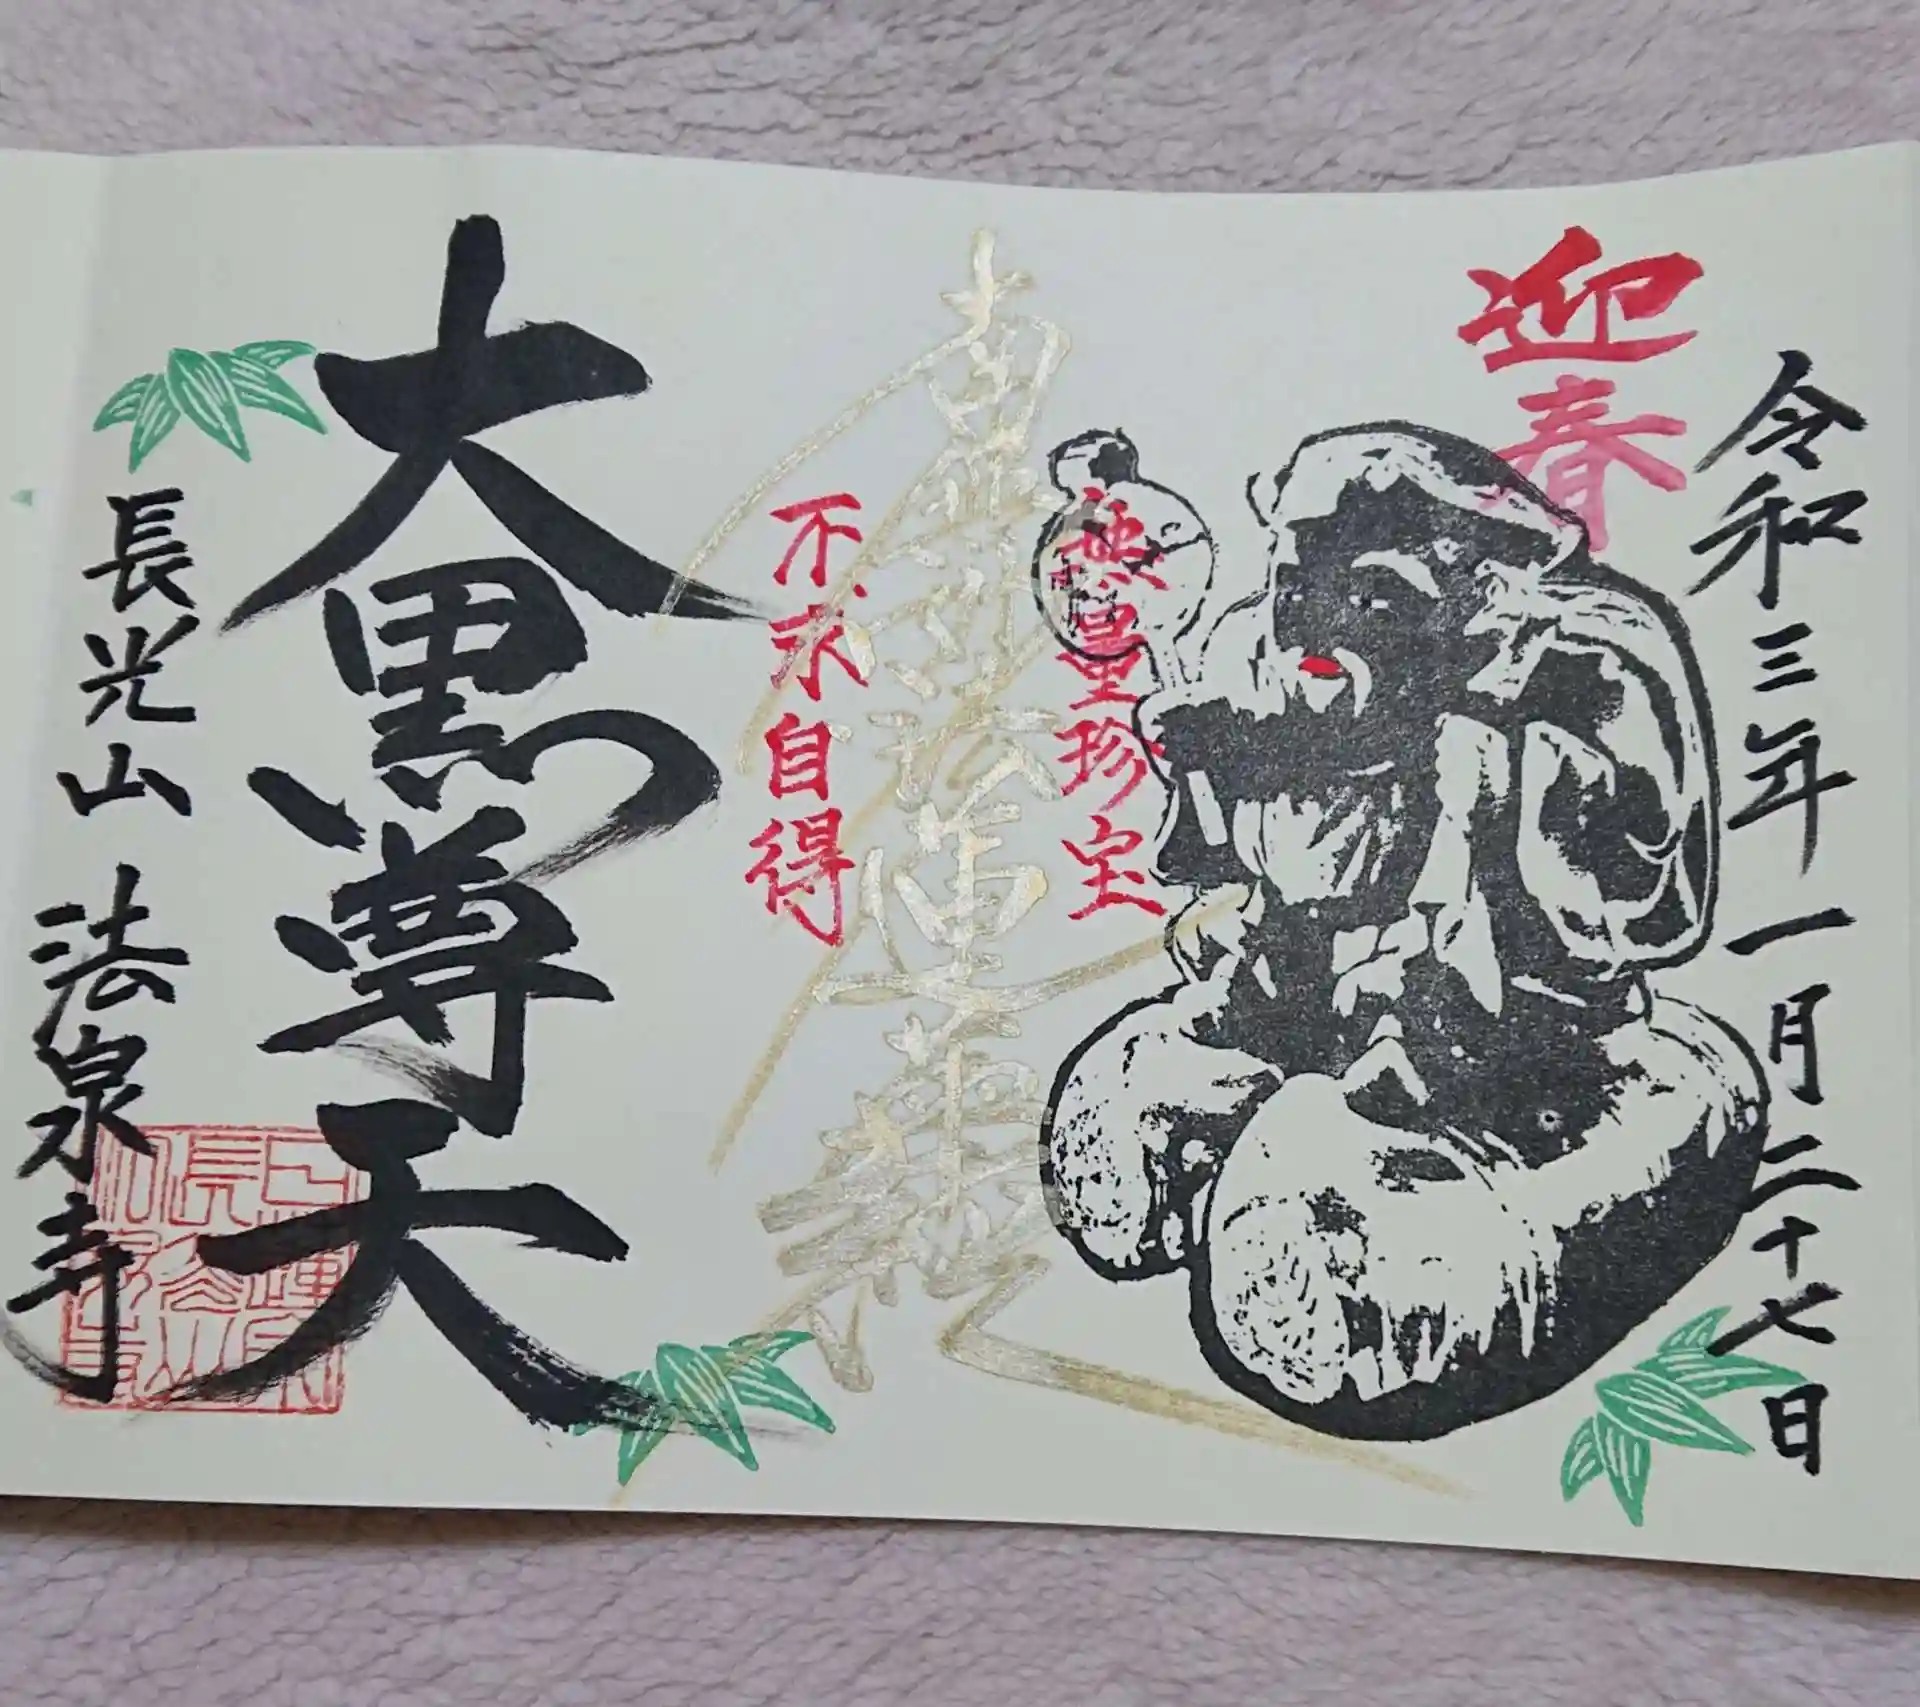 迎春
令和三年一月二十七日
無量珍宝
南無妙法蓮華経
不求自得
大黒尊天
長光山 法泉寺